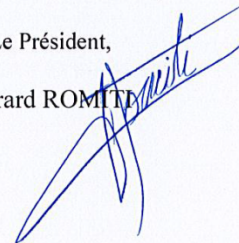 Le Président,
érard ROMITI